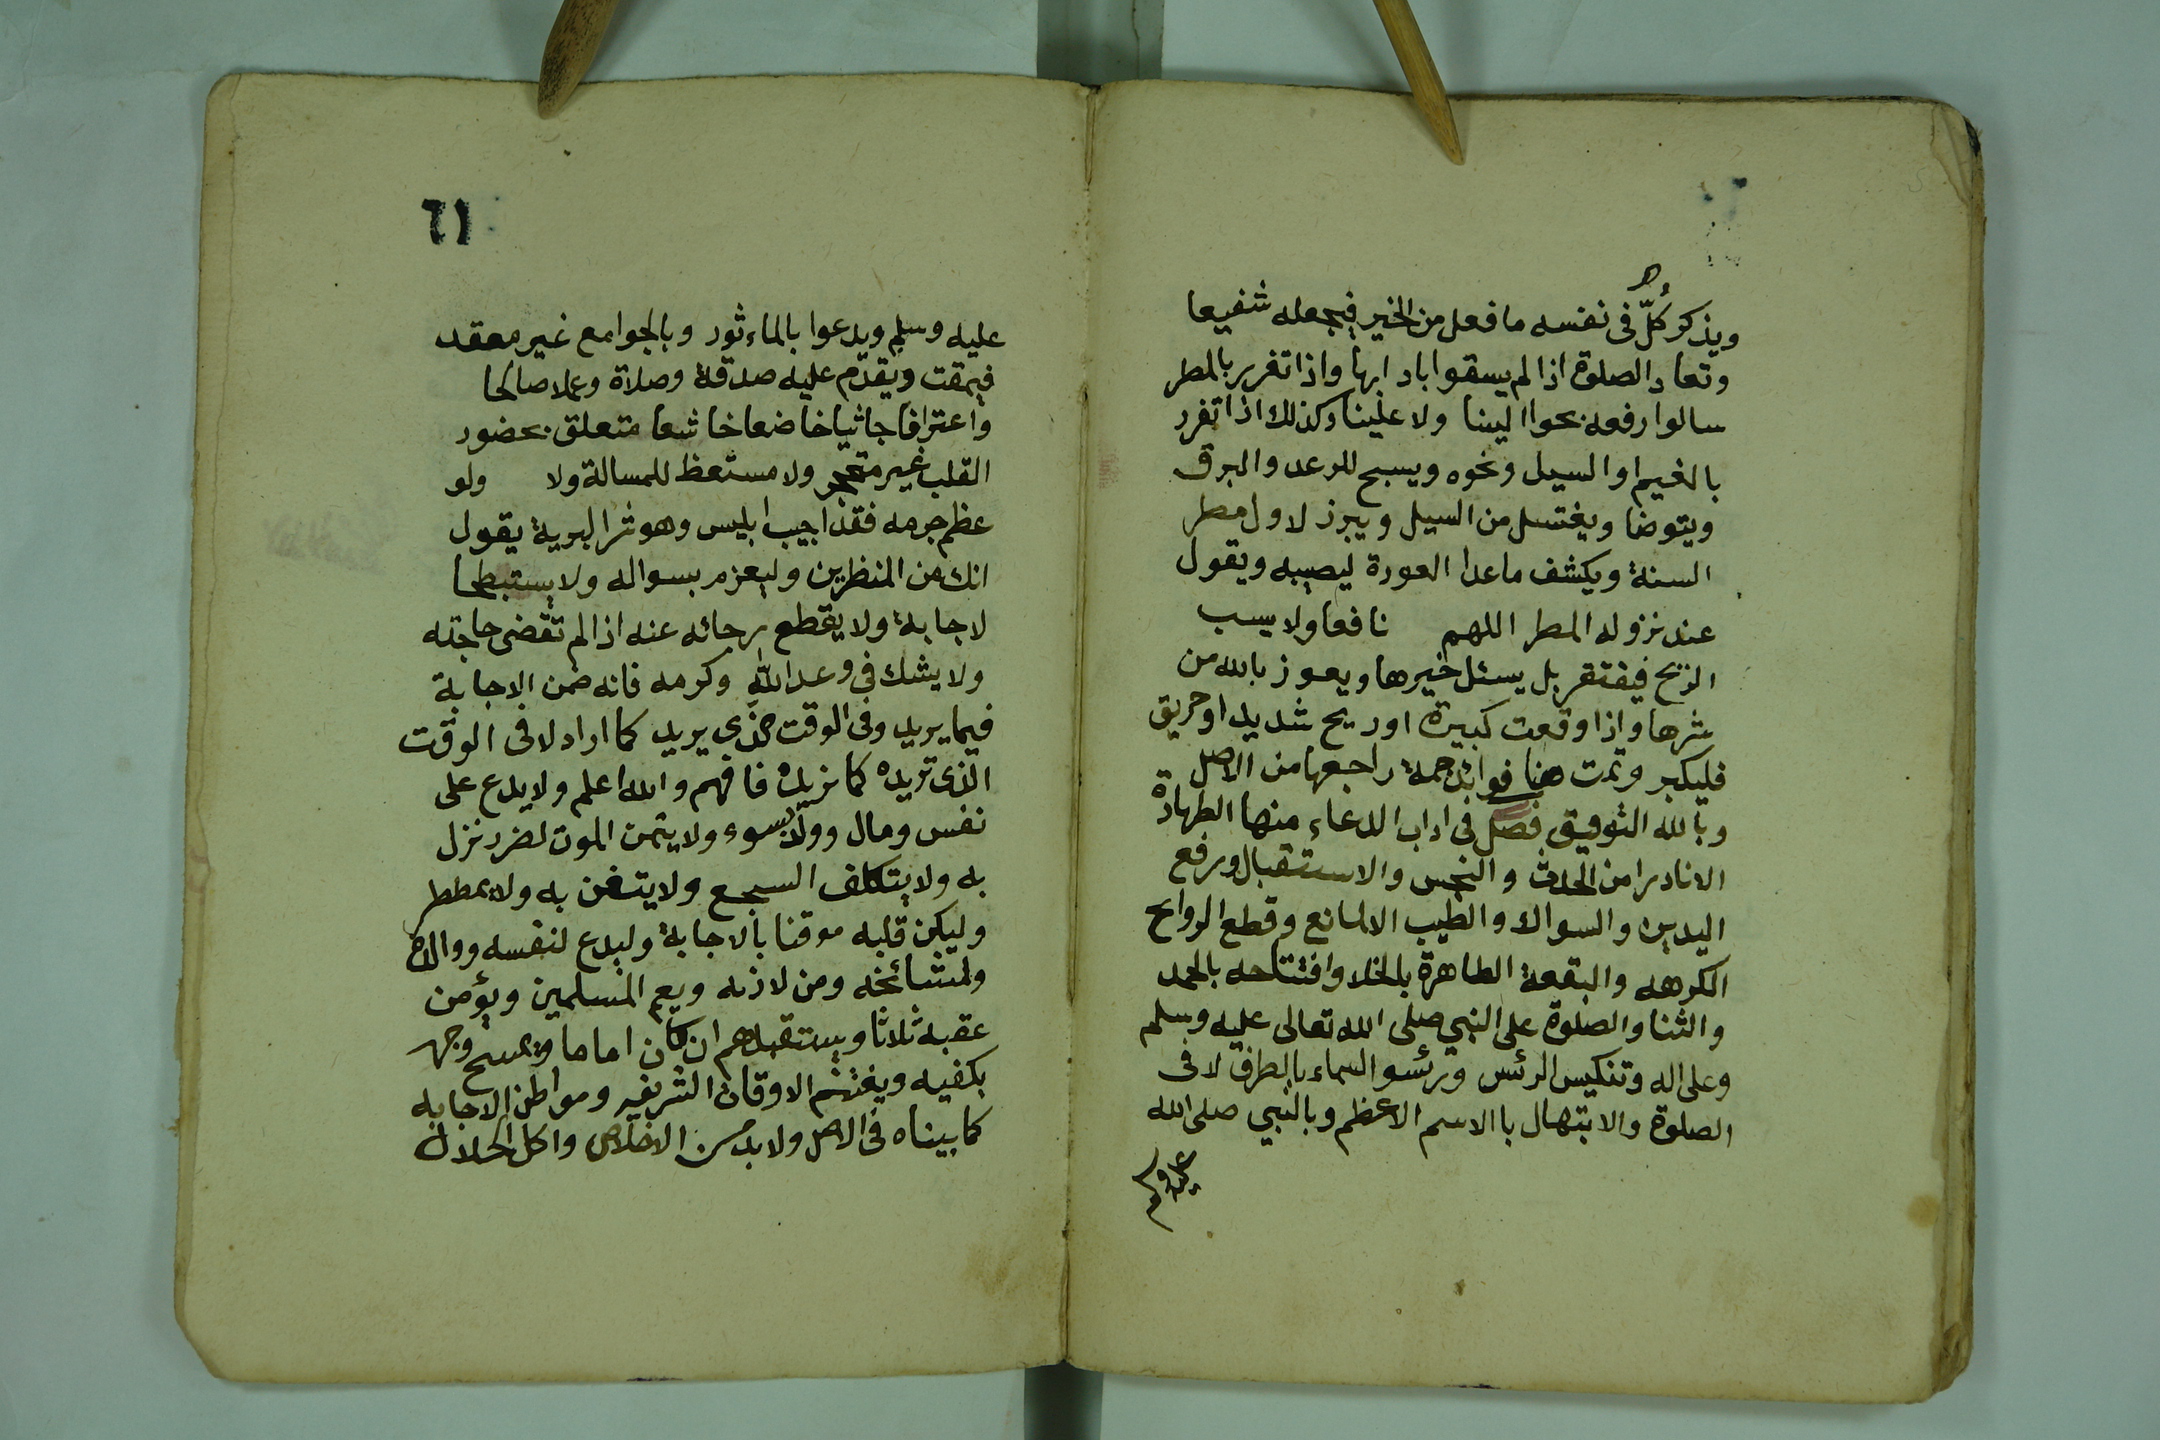 ويذكر كلّ فى نفسه ما فعل من الخير فيجعله شفيعا
وتعاد الصلوة اذا لم يسقوا باد ابها واذا تضرر بالمطر
سالوا رفعه بحوا الينا ولا علينا وكذلك اذا تضرر
بالغيم او السيل ونحوه ويسبح للرعد والبرق
ويتوضا ويغتسل من السيل ويبرز لاول مطر
السنة ويكشف ما عدا العورة ليصيبه ويقول
عند نزوله المطر اللهم نافعا ولا يسب
الريح فيفتقر بل يسئل خيرها ويعوز بالله من
شرها واذا وقعت كبيرة او ريح شديد او حريق
فليكبر وتمت هنا فوائد جمة راجعها من الاصل
وبالله التوفيق فصل فى اداب الدعاء منها الطهارة
الا نادرا من الحدث والنجس والاستقبال ورفع
اليدين والسواك والطيب الا لمانع وقطع الروايح
الكرهه والبقعة الطاهرة بالخلا وافتتاحه بالحمد
والثنا والصلوة على النبي صلى الله تعالى عليه وسلم
وعلى اله وتنكيس الرئس السماء بالطرف لا فى
الصلوة والابتهال باالاسم الاعظم وبالنبي صلى الله
٦١
عليه وسلم ويدعوا بالماءثور وبالجوامع غير معقد
فيمقت ويقدم عليه صدقة وصلاة وعملا صالحا
واعترافا جاثيا خاضعا خاشعا متعلق بحضور
القلب غير ولا مستعظ للمسالة ولا ولو
عظم جرمه فقد اجيب ابليس وهو شر البرية يقول
انك من المنظرين وليعزم بسواله ولا يستبطحا
لاجابة ولا يقطع رجائه عنه اذا لم تقضى حاجته
ولا يشك فى وعد الله وكرمه فانه ضمن الاجابة
فيما يريد وفى الوقت يريد كما اراد لا فى الوقت
الذى تريده كما فافهم والله اعلم ولا يدع على
نفس ومال وولد بسوء ولا يتمن الموت لضرر نزل
به ولا يتكلف السجع ولا يتغن به ولا يمطط
وليكن قلبه موقنا بالاجابة وليدع لنفسه ووالده
ولمشائخه ومن لاذبه ويعم المسلمين ويؤمن
عقبه ثلاثا ويستقبلهم ان كان اماما ويمسح وجهه
بكفيه ويغتنم الاوقات الشريفه ومواطن الاجابه
كما بيناه فى الاصل ولابد من الاخلاص واكل الحلال